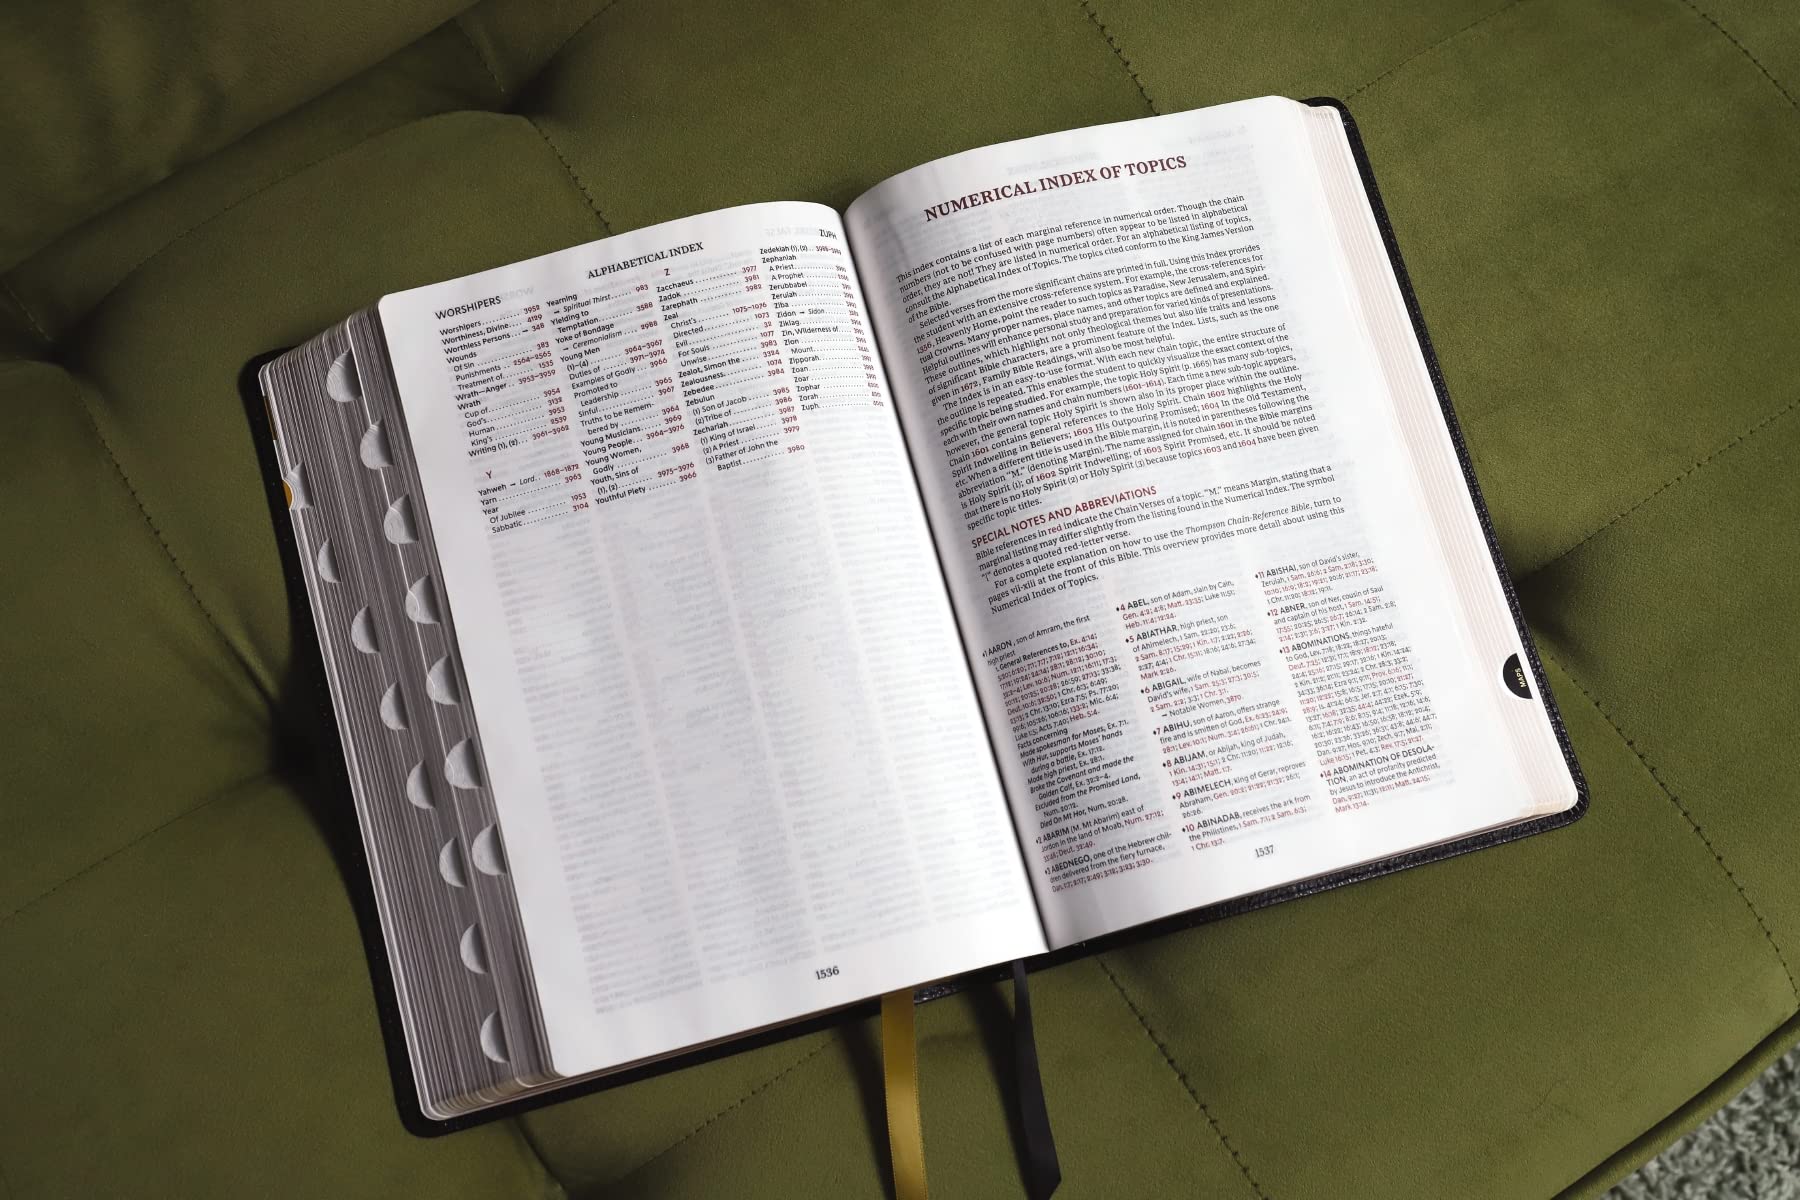 ALPHABETICAL INDEX
ZUPH
WORSHIPERS
Worshipers 3959
Worthiness, Divine 4189
Worthless Persons → 348
Wounds 383
Of Sin
Punishments 2564–2565
Treatment of 1535
Wrath—Anger 3953–3959
Wrath
Cup of 3954
God's
Human 3953
King's
Writing (1), (2) 3961–3962
Y
Yahweh → Lord 1868–1872
Yarn 3963
Year
Of Jubilee 1953
Sabbatic 3104
Yearning
→ Spiritual Thirst 983
Yielding to
Temptation 3588
Yoke of Bondage
→ Ceremonialism 2988
Young Men
(1)–(4) 3964–3967
Duties of 3971–3974
Examples of Godly 3966
Promoted to
Leadership 3965
Sinful 3967
Truths to be Remem-
bered by 3964
Young Musicians 3969
Young People 3964–3976
Young Women,
Godly 3968
Youth, Sins of
(1), (2) 3975–3976
Youthful Piety 3966
Z
Zacchaeus 3977
Zadok 3981
Zarephath 3982
Zeal
Christ's 1075–1076
Directed 1073
Evil 32
For Souls 1077
Unwise
Zealot, Simon the 3324
Zealousness 1074
Zebedee 3984
Zebulun
(1) Son of Jacob 3985
(2) Tribe of 3986
Zechariah 3987
(1) King of Israel 3978
(2) A Priest 3979
(3) Father of John the
Baptist 3980
Zedekiah (1), (2)
Zephaniah
A Priest
A Prophet
Zerubbabel
Zeruiah
Ziba
Zidon → Sidon
Ziklag
Zin, Wilderness of
Zion
Mount
Zipporah
Zoan
Zoar
Zophar
Zorah
Zuph
1536
NUMERICAL INDEX OF TOPICS
This index contains a list of each marginal reference in numerical order. Though the chain
numbers (not to be confused with page numbers) often appear to be listed in alphabetical
order, they are not! They are listed in numerical order. For an alphabetical listing of topics,
consult the Alphabetical Index of Topics. The topics cited conform to the King James Version
of the Bible.
Selected verses from the more significant chains are printed in full. Using this Index provides
the student with an extensive cross-reference system. For example, the cross-references for
1556, Heavenly Home, point the reader to such topics as Paradise, New Jerusalem, and Spiri-
tual Crowns. Many proper names, place names, and other topics are defined and explained.
Helpful outlines will enhance personal study and preparation for varied kinds of presentations.
These outlines, which highlight not only theological themes but also life traits and lessons
of significant Bible characters, are a prominent feature of the Index. Lists, such as the one
given in 1672, Family Bible Readings, will also be most helpful.
The Index is in an easy-to-use format. With each new chain topic, the entire structure of
the outline is repeated. This enables the student to quickly visualize the exact context of the
specific topic being studied. For example, the topic Holy Spirit (p. 1665) has many sub-topics,
each with their own names and chain numbers (1601–1614). Each time a new sub-topic appears,
however, the general topic Holy Spirit is shown also in its proper place within the outline.
Chain 1601 contains general references to the Holy Spirit. Chain 1602 highlights the Holy
Spirit Indwelling in Believers; 1603 His Outpouring Promised; 1604 In the Old Testament,
etc. When a different title is used in the Bible margin, it is noted in parentheses following the
abbreviation "M." (denoting Margin). The name assigned for chain 1601 in the Bible margins
is Holy Spirit (1); of 1602 Spirit Indwelling; of 1603 Spirit Promised, etc. It should be noted
that there is no Holy Spirit (2) or Holy Spirit (3) because topics 1603 and 1604 have been given
specific topic titles.
SPECIAL NOTES AND ABBREVIATIONS
Bible references in red indicate the Chain Verses of a topic. "M." means Margin, stating that a
marginal listing may differ slightly from the listing found in the Numerical Index. The symbol
denotes a quoted red-letter verse.
For a complete explanation on how to use the Thompson Chain-Reference Bible, turn to
pages vii-xiii at the front of this Bible. This overview provides more detail about using this
Numerical Index of Topics.
•1 AARON, son of Amram, the first
high priest
1. General References to, Ex. 4:14;
Luke 1:5; Acts 7:40; Heb. 5:4.
Facts concerning
Made spokesman for Moses, Ex. 7:1.
With Hur, supports Moses' hands
during a battle, Ex. 17:12.
Made high priest, Ex. 28:1.
Broke the Covenant and made the
Golden Calf, Ex. 32:2–4.
Excluded from the Promised Land,
Num. 20:12.
Died On Mt Hor, Num. 20:28.
•2 ABARIM (M. Mt Abarim) east of
Jordan in the land of Moab, Num. 27:12;
33:48; Deut. 32:49.
•3 ABEDNEGO, one of the Hebrew chil-
dren delivered from the fiery furnace,
Dan. 1:7; 2:17; 2:49; 3:12; 3:23; 3:30.
•4 ABEL, son of Adam, slain by Cain,
Gen. 4:2; 4:8; Matt. 23:35; Luke 11:51;
Heb. 11:4; 12:24.
•5 ABIATHAR, high priest, son
of Ahimelech, 1 Sam. 22:20; 23:6;
2 Sam. 8:17; 15:29; 1 Kin. 1:7; 2:22; 2:26;
2:27; 4:4; 1 Chr. 15:11; 18:16; 24:6; 27:34;
Mark 2:26.
•6 ABIGAIL, wife of Nabal, becomes
David's wife, 1 Sam. 25:3; 27:3; 30:5;
2 Sam. 2:2; 3:3; 1 Chr. 3:1.
→ Notable Women, 3870.
•7 ABIHU, son of Aaron, offers strange
fire and is smitten of God, Ex. 6:23; 24:9;
28:1; Lev. 10:1; Num. 3:4; 26:61; 1 Chr. 24:1.
•8 ABIJAM, or Abijah, king of Judah,
1 Kin. 14:31; 15:1; 2 Chr. 11:20; 11:22; 12:16;
13:4; 14:1; Matt. 1:7.
•9 ABIMELECH, king of Gerar, reproves
Abraham, Gen. 20:2; 21:22; 21:32; 26:1;
26:26.
•10 ABINADAB, receives the ark from
the Philistines, 1 Sam. 7:1; 2 Sam. 6:3;
1 Chr. 13:7.
•11 ABISHAI, son of David's sister,
Zeruiah, 1 Sam. 26:6; 2 Sam. 2:18; 3:30;
10:10; 16:9; 18:2; 19:21; 20:6; 21:17; 23:18;
1 Chr. 11:20; 18:12; 19:11.
•12 ABNER, son of Ner, cousin of Saul
and captain of his host, 1 Sam. 14:51;
17:55; 20:25; 26:5; 26:7; 26:14; 2 Sam. 2:8;
2:14; 2:31; 3:6; 3:37; 1 Kin. 2:32.
•13 ABOMINATIONS, things hateful
to God, Lev. 7:18; 18:22; 18:27; 20:13;
Luke 16:15; 1 Pet. 4:3; Rev. 17:5; 21:27.
•14 ABOMINATION OF DESOLA-
TION, an act of profanity predicted
by Jesus to introduce the Antichrist,
Dan. 9:27; 11:31; 12:11; Matt. 24:15;
Mark 13:14.
1537
MAPS